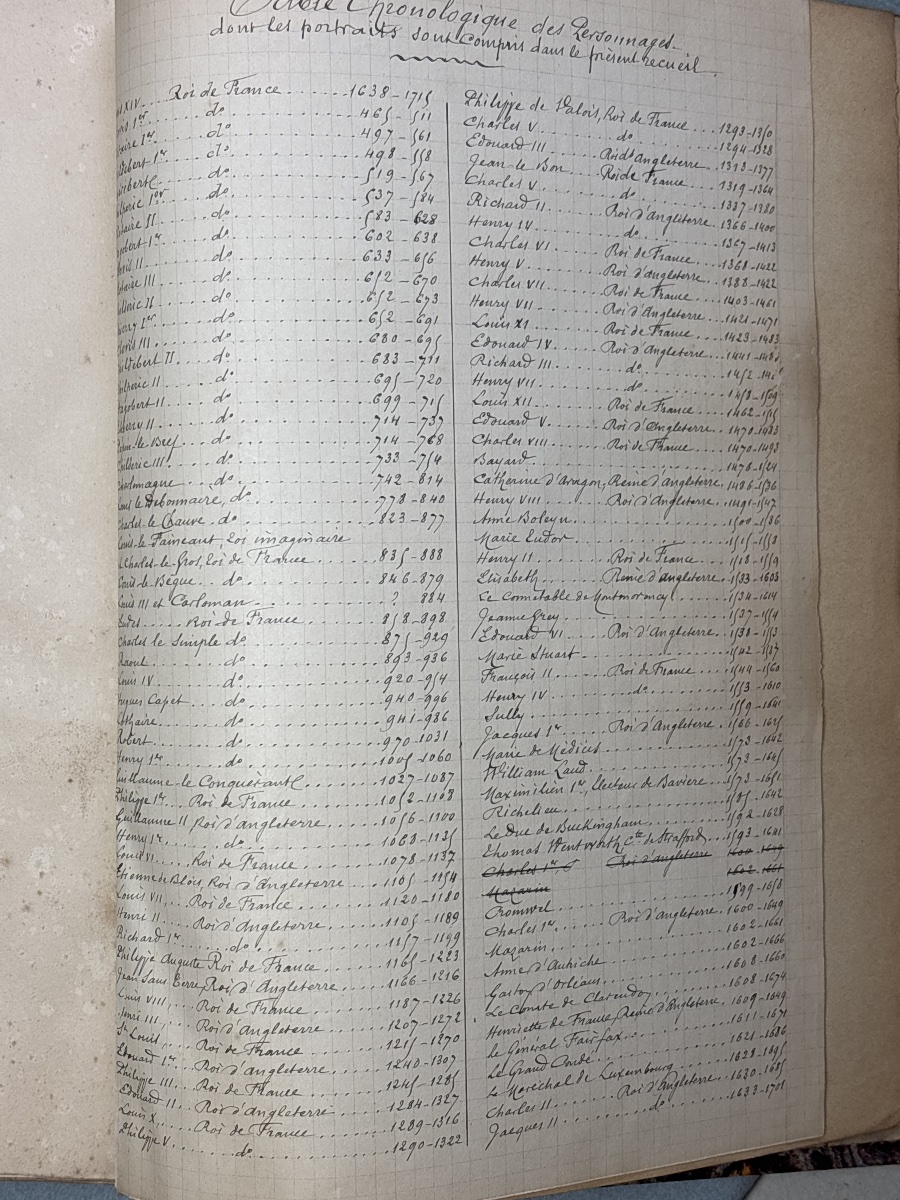 Table Chronologique des Personnages
dont les portraits sont compris dans le présent recueil.
XIV.... Roi de France ........ 1638-1715
1er ........ do ........ 465-511
aire 1er ........ do ........ 497-561
debert 1er ........ do ........ 498-558
ribert ........ do ........ 519-567
lperic 1er ........ do ........ 537-584
taire II ........ do ........ 583-628
gobert 1er ........ do ........ 602-638
ovis II ........ do ........ 633-656
otaire III ........ do ........ 652-670
ilderic II ........ do ........ 652-673
ierry 1er ........ do ........ 652-691
Clovis III ........ do ........ 680-695
ildebert II ........ do ........ 683-711
ilperic II ........ do ........ 695-720
Dagobert II ........ do ........ 699-715
ierry II ........ do ........ 714-737
Pépin le Bref ........ do ........ 714-768
Childeric III ........ do ........ 733-754
Charlemagne ........ do ........ 742-814
Louis le Débonnaire, do ........ 778-840
Charles le Chauve. do ........ 823-877
Louis-le Fainéant, Roi imaginaire
Charles-le-Gros, Roi de France ........ 835-888
Louis-le Bègue ... do ........ 846-879
Louis III et Carloman ........ ? 884
Eudes ........ Roi de France ........ 858-898
Charles le Simple do ........ 875-929
Raoul ........ do ........ 893-936
Louis IV ........ do ........ 920-954
Hugues Capet ........ do ........ 940-996
Lothaire ........ do ........ 941-986
Robert ........ do ........ 970-1031
Henry 1er ........ do ........ 1005-1060
Guillaume le Conquérant ........ 1027-1087
Philippe 1er ... Roi de France ........ 1052-1108
Guillaume II Roi d'Angleterre ........ 1056-1100
Henry 1er ........ do ........ 1068-1135
Louis VI ... Roi de France ........ 1078-1137
Etienne de Blois, Roi d'Angleterre ........ 1105-1154
Louis VII, ... Roi de France ........ 1120-1180
Henri II ... Roi d'Angleterre ........ 1105-1189
Richard 1er ........ do ........ 1157-1199
Philippe Auguste Roi de France ........ 1165-1223
Jean Sans Terre, Roi d'Angleterre ........ 1166-1216
Louis VIII, ... Roi de France ........ 1187-1226
Henri III, ... Roi d'Angleterre ........ 1207-1272
St Louis, ... Roi de France ........ 1215-1270
Edouard 1er ... Roi d'Angleterre ........ 1240-1307
Philippe III ... Roi de France ........ 1245-1285
Edouard II ... Roi d'Angleterre ........ 1284-1327
Louis X ... Roi de France ........ 1289-1316
Philippe V ........ do ........ 1290-1322
Philippe de Valois, Roi de France ... 1293-1350
Charles V ........ do ........ 1294-1328
Edouard III ... Roi d'Angleterre ... 1313-1377
Jean-le Bon ... Roi de France ... 1319-1364
Charles V ........ do ........ 1337-1380
Richard II ... Roi d'Angleterre ... 1366-1400
Henry IV ........ do ........ 1367-1413
Charles VI ... Roi de France ... 1368-1422
Henry V ... Roi d'Angleterre ... 1388-1422
Charles VII ... Roi de France ... 1403-1461
Henry VII ... Roi d'Angleterre ... 1421-1471
Louis XI ... Roi de France ... 1423-1483
Edouard IV ... Roi d'Angleterre ... 1441-148
Richard III ........ do ........ 1452-14
Henry VII ........ do ........ 1458-1509
Louis XII ... Roi de France ... 1462-1515
Edouard V ... Roi d'Angleterre ... 1470-1483
Charles VIII ... Roi de France ... 1470-1493
Bayard ........ 1476-1524
Catherine d'Aragon, Reine d'Angleterre. 1486-1536
Henry VIII ... Roi d'Angleterre ... 1491-1547
Anne Boleyn ........ 1500-1536
Marie Tudor ........ 1515-1558
Henry II ... Roi de France ... 1518-1559
Elisabeth ... Reine d'Angleterre ... 1533-1603
Le Connétable de Montmorency ... 1534-1614
Jeanne Grey ........ 1537-1554
Edouard VI ... Roi d'Angleterre ... 1538-1553
Marie Stuart ........ 1542-1587
François II ... Roi de France ... 1544-1560
Henry IV ........ do ........ 1553-1610
Sully ........ 1559-1641
Jacques 1er ... Roi d'Angleterre ... 1566-1625
Marie de Médicis ........ 1573-1642
William Laud ........ 1573-1645
Maximilien 1er, Electeur de Bavière ... 1573-1651
Richelieu ........ 1585-1642
Le Duc de Buckingham ........ 1592-1628
Thomas Wentworth, Cte de Strafford ... 1593-1641
Charles 1er Roi d'Angleterre 1600-1649
Mazarin 1602-1661
Cromwel ........ 1599-1658
Charles 1er ... Roi d'Angleterre. 1600-1649
Mazarin ........ 1602-1661
Anne d'Autriche ........ 1602-1666
Gaston d'Orléans ........ 1608-1660
Le Comte de Clarendon ........ 1608-1674
Henriette de France, Reine d'Angleterre. 1609-1649
Le Général Fairfax ........ 1611-1671
Le Grand Condé ........ 1621-1686
Le Maréchal de Luxembourg ........ 1628-1695
Charles II ... Roi d'Angleterre ... 1630-1685
Jacques II ........ do ........ 1633-1701